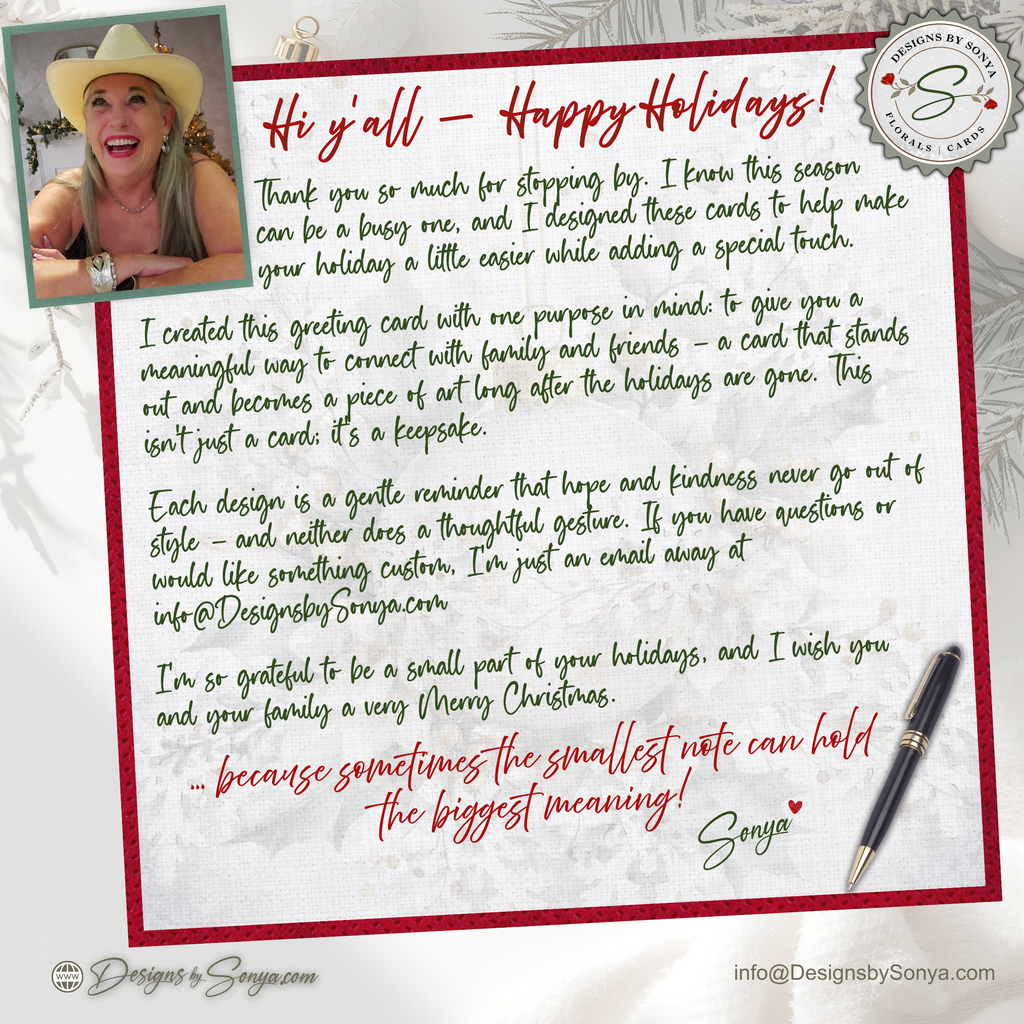 Hi y'all – Happy Holidays!
DESIGNS BY SONYA
S
FLORALS | CARDS
Thank you so much for stopping by. I know this season
can be a busy one, and I designed these cards to help make
your holiday a little easier while adding a special touch.
I created this greeting card with one purpose in mind: to give you a
meaningful way to connect with family and friends – a card that stands
out and becomes a piece of art long after the holidays are gone. This
isn't just a card; it's a keepsake.
Each design is a gentle reminder that hope and kindness never go out of
style – and neither does a thoughtful gesture. If you have questions or
would like something custom, I'm just an email away at
info@DesignsbySonya.com
I'm so grateful to be a small part of your holidays, and I wish you
and your family a very Merry Christmas.
... because sometimes the smallest note can hold
the biggest meaning!
Sonya
WWW
Designs by Sonya.com
info@DesignsbySonya.com